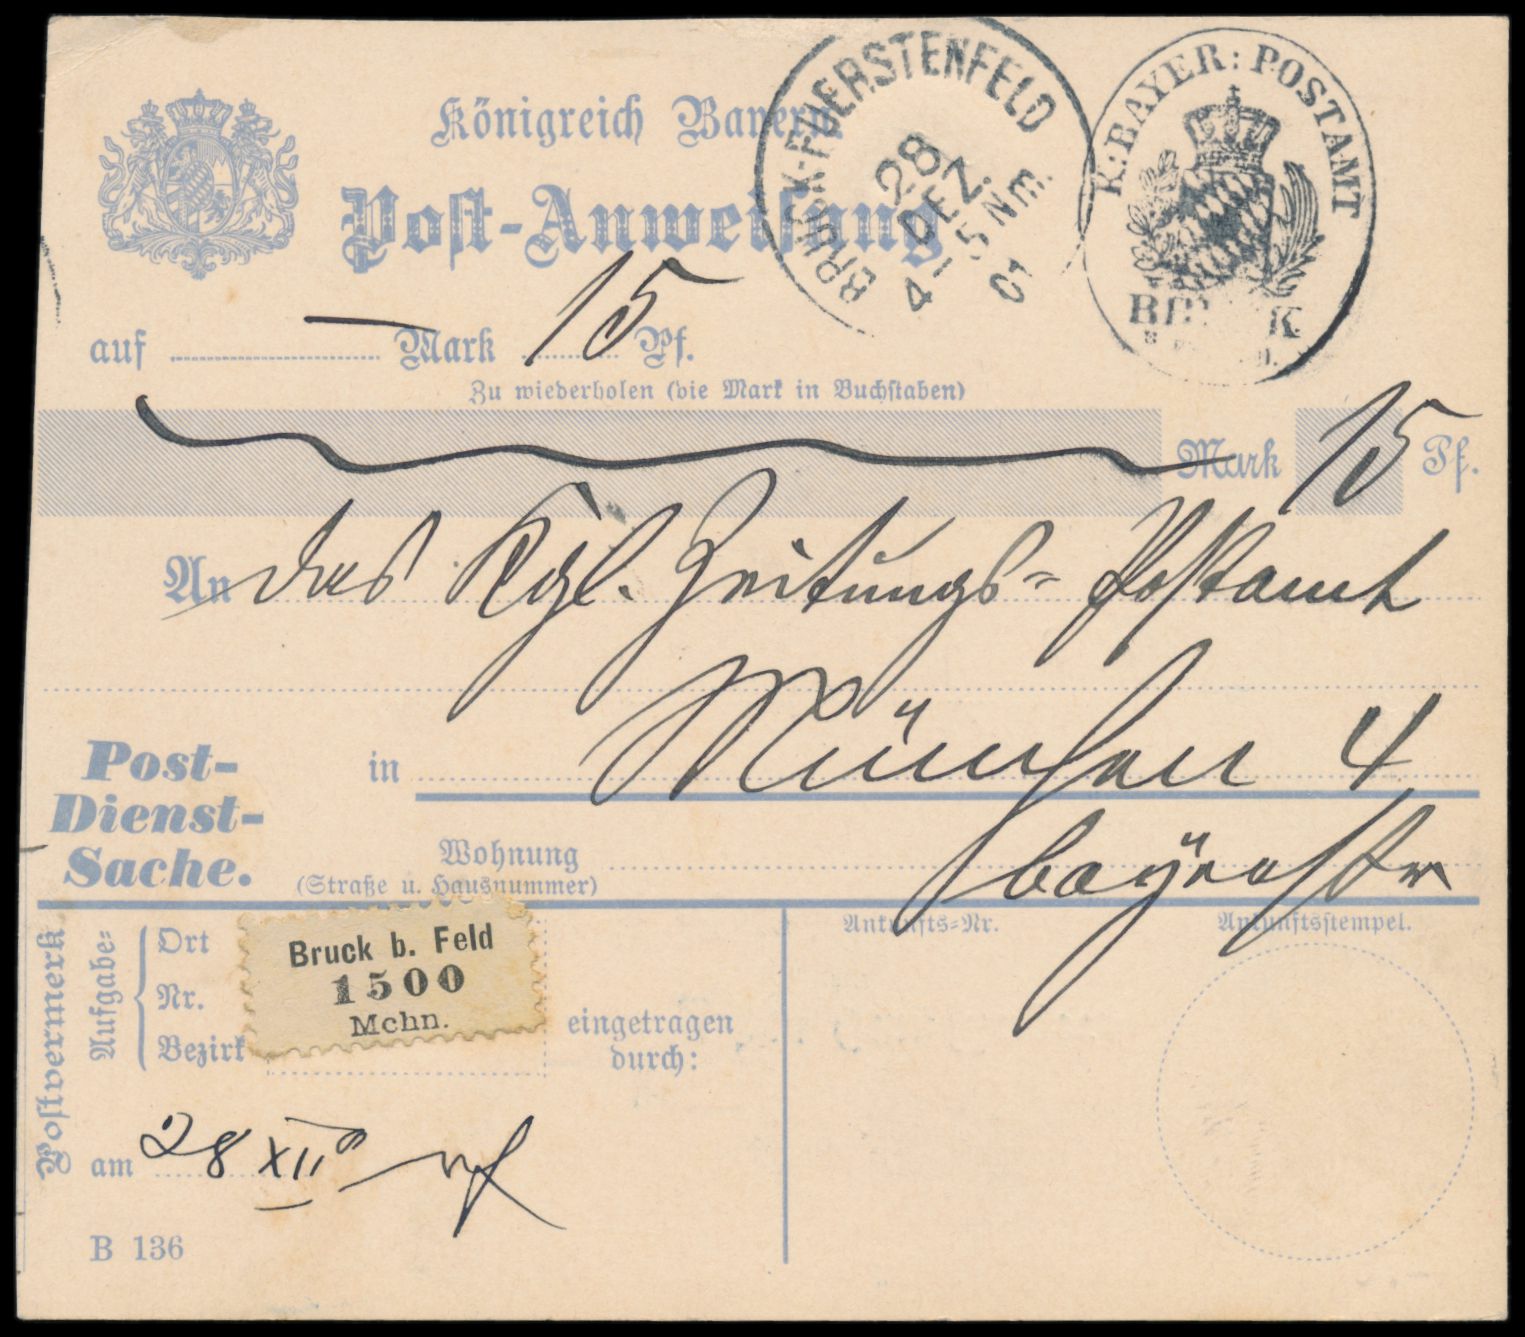 Königreich Bayern.
Post-Anweisung
BRUCK-FUERSTENFELD
28
DEZ.
4-5 Nm.
01
K: BAYER: POSTAMT
auf — Mark 15 Pf.
Zu wiederholen (die Mark in Buchstaben)
Mark 15 Pf.
An das Kgl. Zeitungs-Postamt
in München 4
Post-
Dienst-
Sache.
Wohnung
(Straße u. Hausnummer)
bayerstr
Postvermerk
Aufgabe-
Ort
Nr.
Bezirk
Bruck b. Feld
1500
Mchn.
eingetragen
durch:
Ankunfts-Nr.
Ankunftsstempel.
am 28 XII
B 136